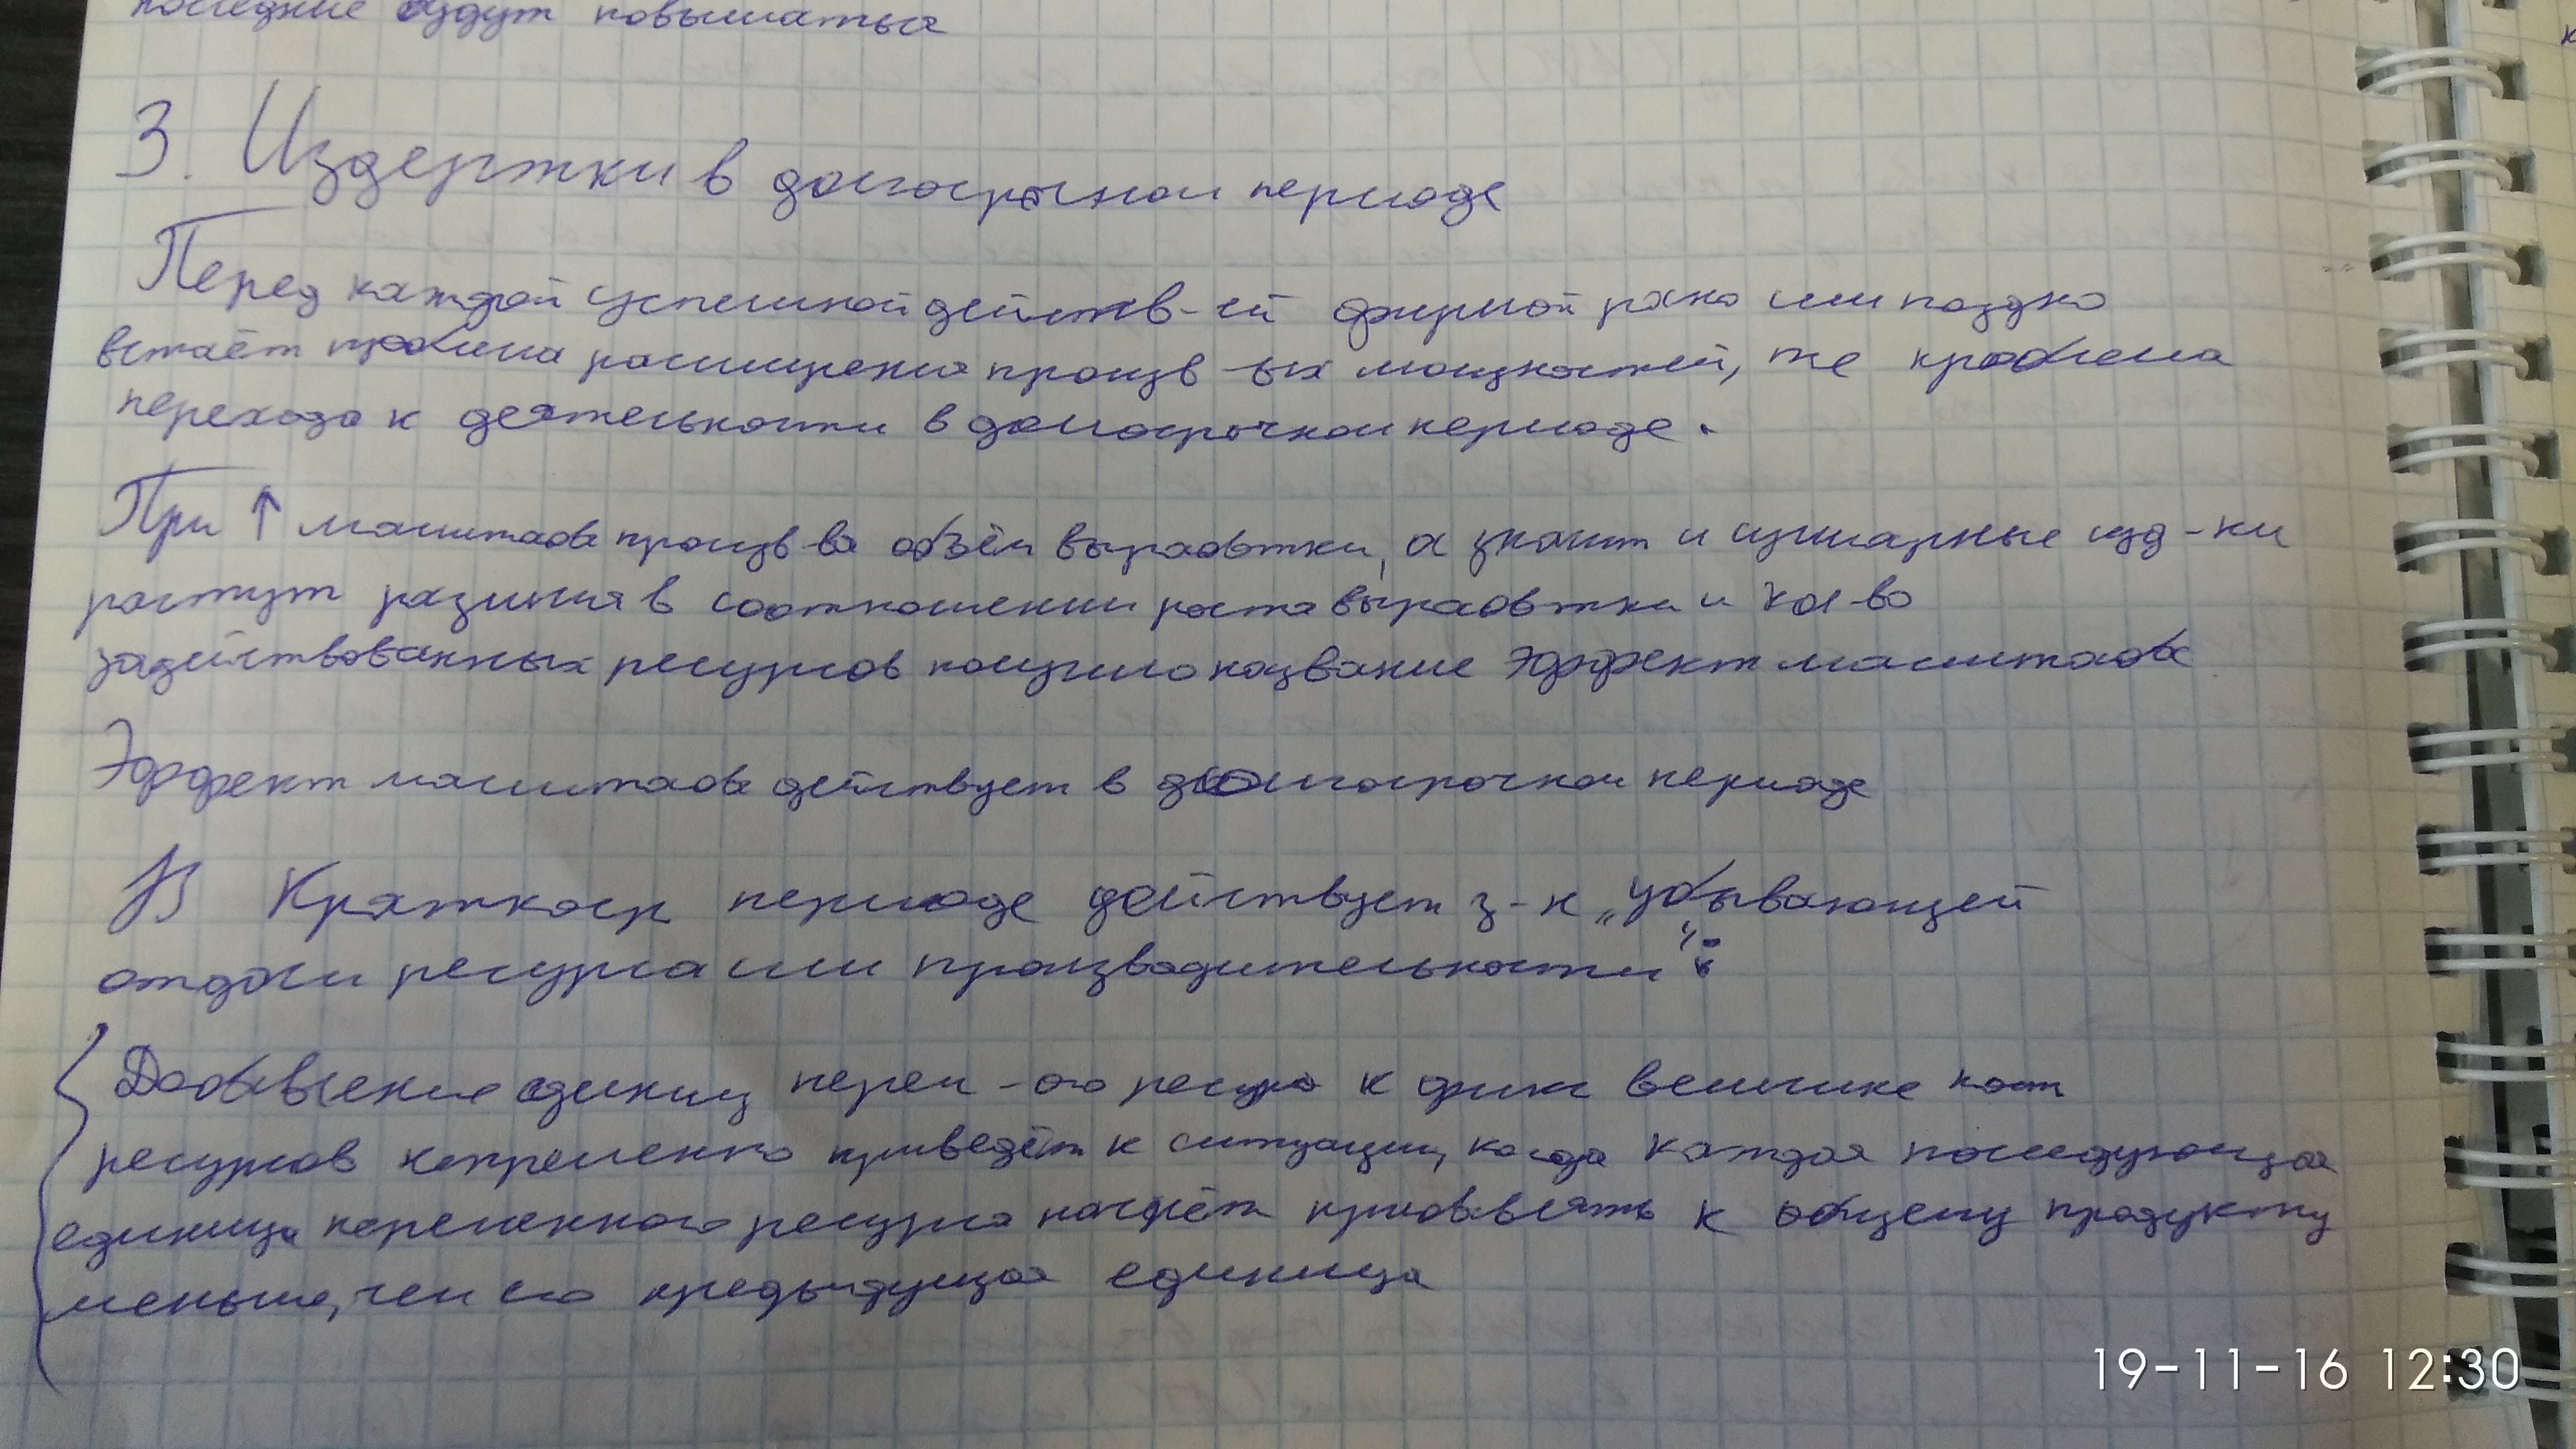 последние будут повышаться
3. Издержки в долгосрочном периоде
Перед каждой успешной действ-ей фирмой рано или поздно
встаёт проблема расширения произв-ых мощностей, же проблема
перехода к деятельности в долгосрочном периоде.
При ↑ масштаба произв-ва объём выработки, а значит и суммарные изд-ки
растут разница в соотношении роста выработки и кол-во
задействованных ресурсов получило название эффект масштаба
Эффект масштаба действует в долгосрочном периоде
В Краткоср периоде действует з-к „убывающей
отдачи ресурса или производительности“:
Добавление единиц перем-ого ресурса к фикс величине пост
ресурсов непременно приведёт к ситуации, когда каждая последующая
единица переменного ресурса начнёт прибавлять к общему продукту
меньше, чем его предыдущая единица
19-11-16 12:30